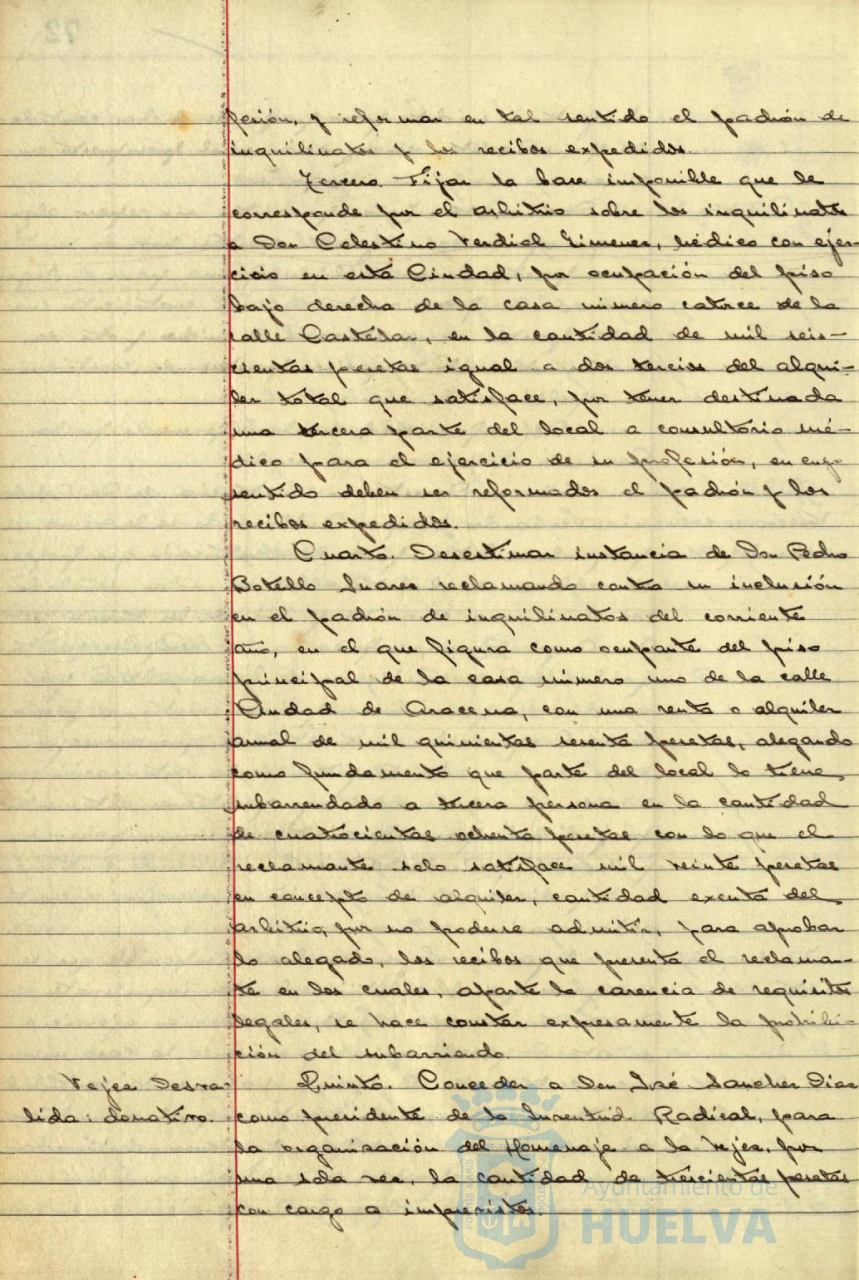 fesión, y reformar en tal sentido el padrón de
inquilinatos y los recibos expedidos.
Tercero. Fijar la base imponible que le
corresponde por el arbitrio sobre los inquilinatos
a Don Celestino Verdier Gimenez, médico con ejer-
cicio en esta Ciudad, por ocupación del piso
bajo derecha de la casa número catorce de la
calle Castelar, en la cantidad de mil seis-
cientas pesetas igual a dos tercios del alqui-
ler total que satisface, por tener destinada
una tercera parte del local a consultorio mé-
dico para el ejercicio de su profesión, en cuyo
sentido deben ser reformados el padrón y los
recibos expedidos.
Cuarto. Desestimar instancia de Don Pedro
Botello Suarez reclamando contra su inclusión
en el padrón de inquilinatos del corriente
año, en el que figura como ocupante del piso
principal de la casa número uno de la calle
Ciudad de Aracena, con una renta o alquiler
anual de mil quinientas sesenta pesetas, alegando
como fundamento que parte del local lo tiene
subarrendado a tercera persona en la cantidad
de cuatrocientas ochenta pesetas con lo que el
reclamante solo satisface mil veinte pesetas
en concepto de alquiler, cantidad exenta del
arbitrio, por no poderse admitir, para aprobar
lo alegado, los recibos que presenta el reclaman-
te en los cuales, aparte la carencia de requisitos
legales, se hace constar expresamente la prohibi-
ción del subarriendo.
Vejez Desva-
lida: donativo.
Quinto. Conceder a Don José Sanchez Diaz
como presidente de la Juventud Radical, para
la organización del Homenaje a la Vejez, por
una sola vez, la cantidad de trescientas pesetas
con cargo a imprevistos.
Ayuntamiento de
HUELVA